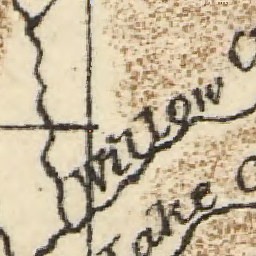 Willow C
Lake C